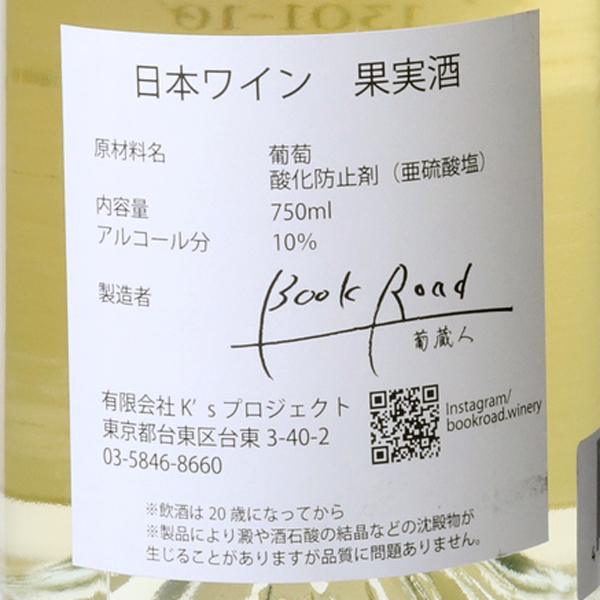 日本ワイン　果実酒
原材料名　葡萄
酸化防止剤（亜硫酸塩）
内容量　750ml
アルコール分　10%
製造者　Book Road
葡蔵人
有限会社K'sプロジェクト
東京都台東区台東 3-40-2
03-5846-8660
Instagram/
bookroad.winery
※飲酒は 20 歳になってから
※製品により澱や酒石酸の結晶などの沈殿物が
生じることがありますが品質に問題ありません。